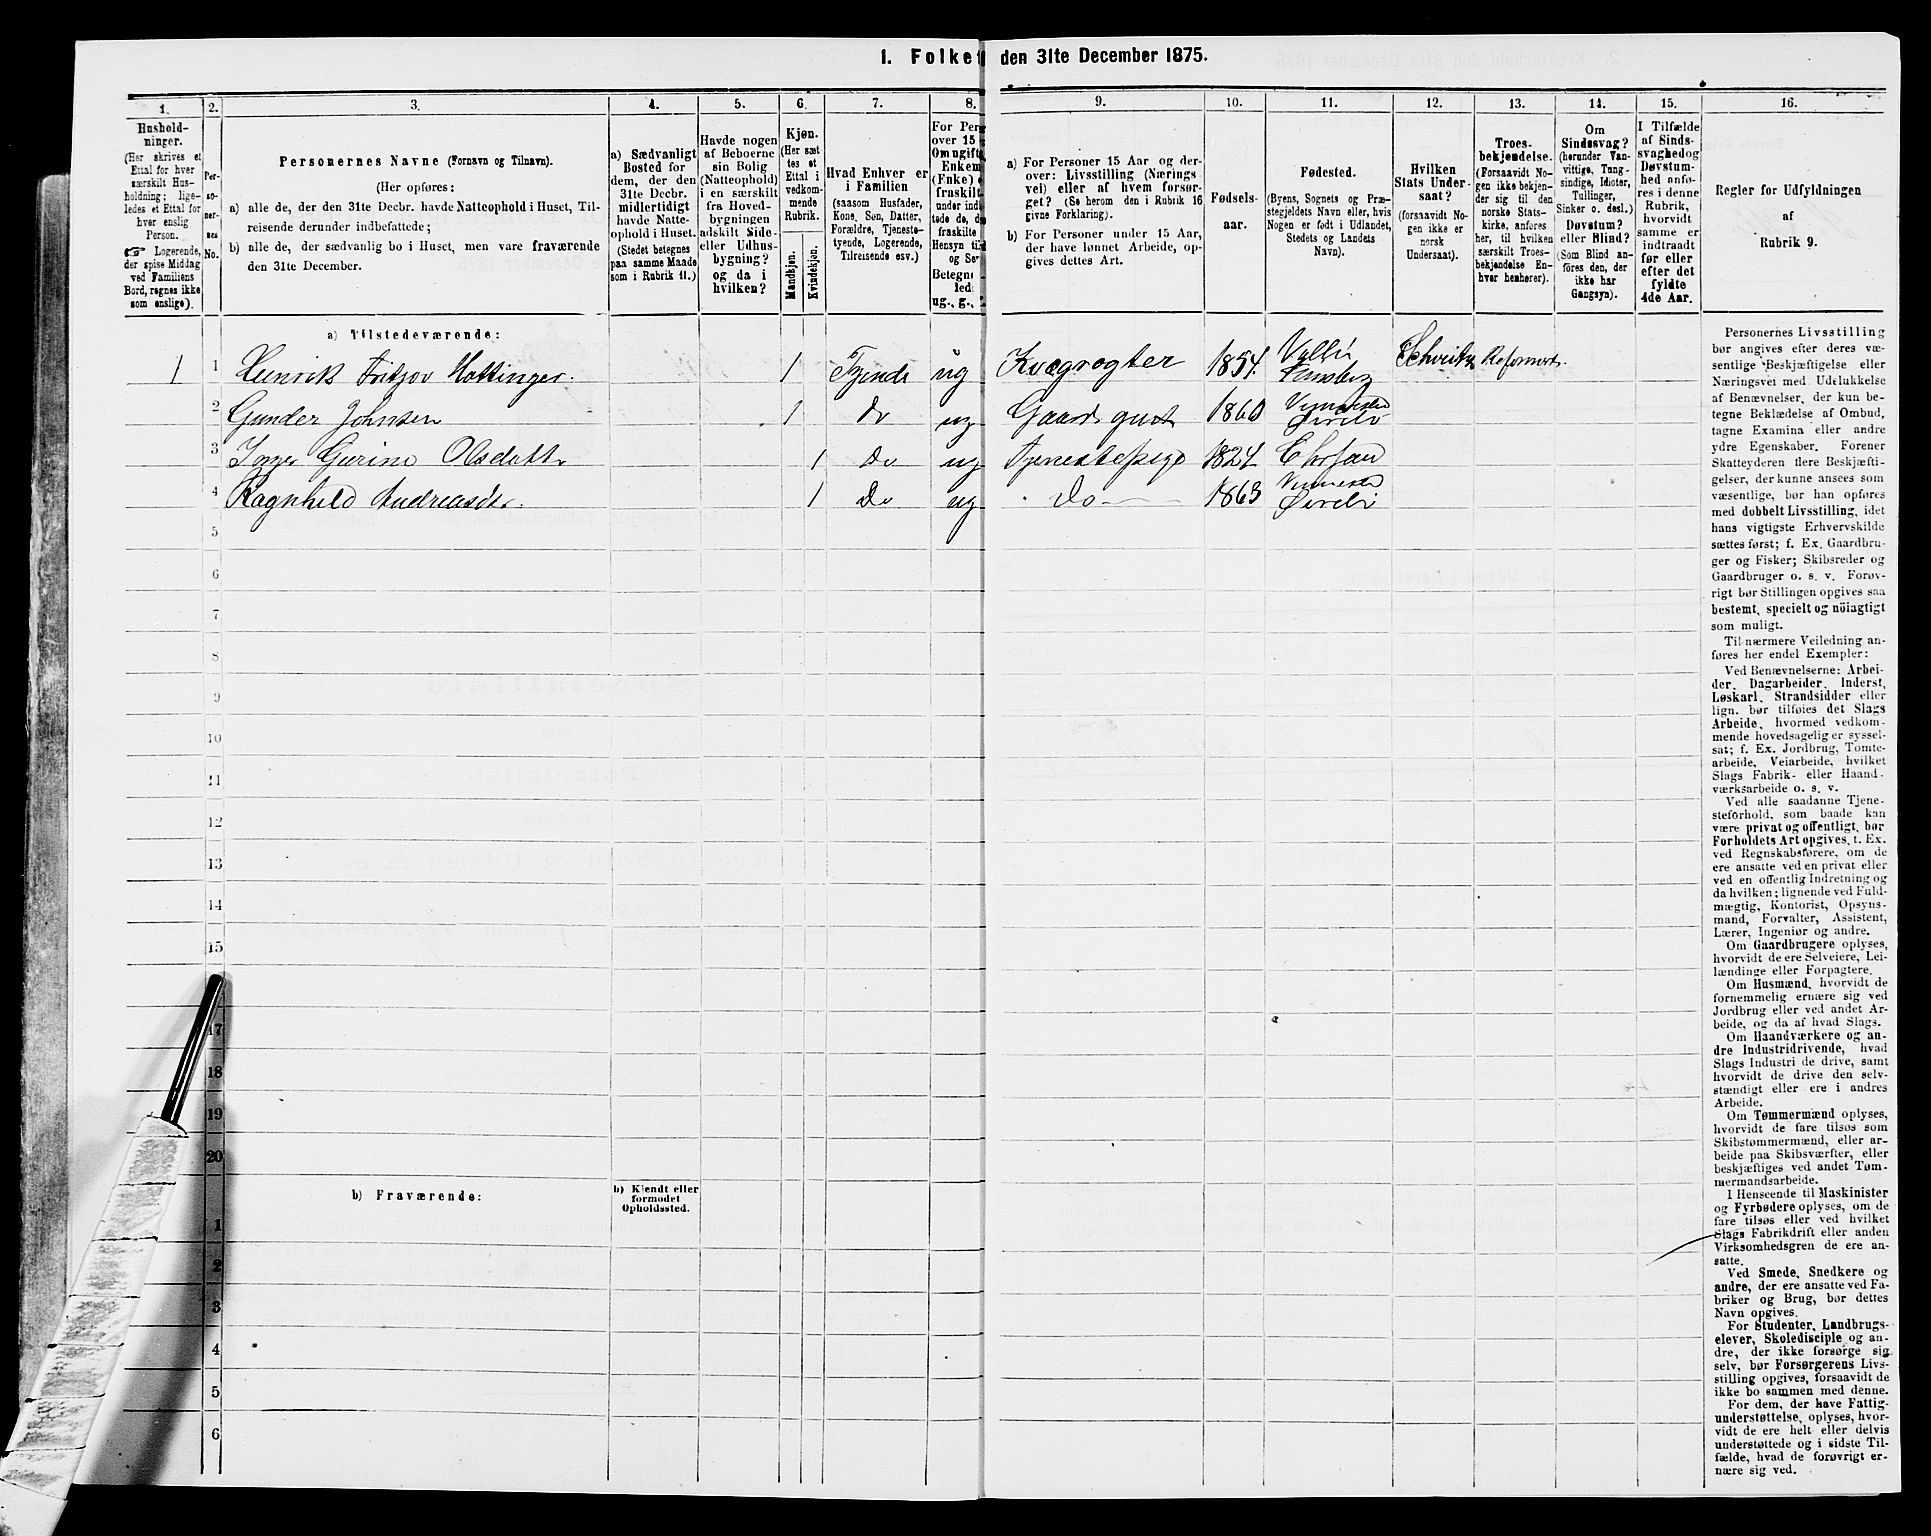 1. Folket
den 31te December 1875.
1.
2.
3.
4.
5.
6.
7.
8.
9.
10.
11.
12.
13.
14.
15.
16.
Hushold-
ninger.
(Her skrives et
Ettal for hver
særskilt Hus-
holdning; lige-
ledes et Ettal for
hver enslig
Person.
☞ Logerende,
der spise Middag
ved Familiens
Bord, regnes ikke
som enslige).
Per-
so-
ner-
nes
No.
Personernes Navne (Fornavn og Tilnavn).
(Her opføres:
a) alle de, der den 31te Decbr. havde Natteophold i Huset, Til-
reisende derunder indbefattede;
b) alle de, der sædvanlig bo i Huset, men vare fraværende
den 31te December.
a) Sædvanligt
Bosted for
dem, der den
31te Decbr.
midlertidigt
havde Natte-
ophold i Huset.
(Stedet betegnes
paa samme Maade
som i Rubrik 11.)
Havde nogen
af Beboerne
sin Bolig
(Natteophold)
i en særskilt
fra Hoved-
bygningen
adskilt Side-
eller Udhus-
bygning?
og da i
hvilken?
Kjøn.
(Her sæt
tes et
Ettal i
vedkom-
mende
Rubrik.
Mandkjøn.
Kvindekjøn.
Hvad Enhver er
i Familien
(saasom Husfader,
Kone, Søn, Datter,
Forældre, Tjeneste-
tyende, Logerende,
Tilreisende osv.)
For Per
over 15
Om ugift
Enkem
(Enke) e
fraskilt
under indb
tede de, d
fraskilte
Hensyn til
og Se
Betegne
led:
ug., g.,
a) For Personer 15 Aar og der-
over: Livsstilling (Nærings-
vei) eller af hvem forsør-
get? (Se herom den i Rubrik 16
givne Forklaring).
b) For Personer under 15 Aar,
der have lønnet Arbeide, op-
gives dettes Art.
Fødsels-
aar.
Fødested.
(Byens, Sognets og Præ-
stegjeldets Navn eller, hvis
Nogen er født i Udlandet,
Stedets og Landets
Navn).
Hvilken
Stats Under-
saat?
(forsaavidt No-
gen ikke er
norsk
Undersaat).
Troes-
bekjendelse.
(Forsaavidt No-
gen ikke bekjen-
der sig til den
norske Stats-
kirke, anføres
her, til hvilken
særskilt Troes-
bekjendelse En-
hver henhører).
Om
Sindssvag?
(herunder Van-
vittige, Tung-
sindige, Idioter,
Tullinger,
Sinker o. desl.)
Døvstum?
eller Blind?
(Som Blind an-
føres den, der
ikke har
Gangsyn).
I Tilfælde
af Sinds-
svaghed og
Døvstum-
hed anfø-
res i denne
Rubrik,
hvorvidt
samme er
indtraadt
før eller
efter det
fyldte
4de Aar.
Regler for Udfyldningen
af
Rubrik 9.
a) Tilstedeværende:
1 1 Henrik Fritjov Hottinger. 1 Tjende ug Kvægrøgter 1854. Schveitz Reformert.
2 Gunder Johnsen 1 do ug Gaardsgut 1860
3 Inger Gurine Olsdatter 1 do ug Tjenestepige 1824 Chrsan
4 Ragnhild Andreasdr. 1 Do ug Do 1863
5
6
7
8
9
10
11
12
13
14
15
17
18
19
20
b) Fraværende:
b) Kjendt eller
formodet
Opholdssted.
1
2
3
4
5
6
Personernes Livsstilling
bør angives efter deres væ-
sentlige Beskjæftigelse eller
Næringsvei med Udelukkelse
af Benævnelser, der kun be-
tegne Beklædelse af Ombud,
tagne Examina eller andre
ydre Egenskaber. Forener
Skatteyderen flere Beskjæfti-
gelser, der kunne ansees som
væsentlige, bør han opføres
med dobbelt Livsstilling, idet
hans vigtigste Erhvervskilde
sættes først; f. Ex. Gaardbru-
ger og Fisker; Skibsreder og
Gaardbruger o. s. v. Forøv-
rigt bør Stillingen opgives saa
bestemt, specielt og nöiagtigt
som muligt.
Til nærmere Veiledning an-
føres her endel Exempler:
Ved Benævnelserne: Arbei-
der, Dagarbeider, Inderst,
Løskarl, Strandsidder eller
lign. bør tilføies det Slags
Arbeide, hvormed vedkom-
mende hovedsagelig er syssel-
sat; f. Ex. Jordbrug, Tomte-
arbeide, Veiarbeide, hvilket
Slags Fabrik- eller Haand-
værksarbeide o. s. v.
Ved alle saadanne Tjene-
steforhold, som baade kan
være privat og offentligt, bør
Forholdets Art opgives, t. Ex.
ved Regnskabsførere, om de
ere ansatte ved en privat eller
ved en offentlig Indretning og
da hvilken; lignende ved Fuld-
mægtig, Kontorist, Opsyns-
mand, Forvalter, Assistent,
Lærer, Ingeniør og andre.
Om Gaardbrugere oplyses,
hvorvidt de ere Selveiere, Lei-
lændinge eller Forpagtere.
Om Husmænd, hvorvidt de
fornemmelig ernære sig ved
Jordbrug eller ved andet Ar-
beide, og da af hvad Slags.
Om Haandværkere og an-
dre Industridrivende, hvad
Slags Industri de drive, samt
hvorvidt de drive den selv-
stændigt eller ere i andres
Arbeide.
Om Tømmermænd oplyses,
hvorvidt de fare tilsøs som
Skibstømmermænd, eller ar-
beide paa Skibsværfter, eller
beskjæftiges ved andet Tøm-
mermandsarbeide.
I Henseende til Maskinister
og Fyrbødere oplyses, om de
fare tilsøs eller ved hvilket
Slags Fabrikdrift eller anden
Virksomhedsgren de ere an-
satte.
Ved Smede, Snedkere og
andre, der ere ansatte ved Fa-
briker og Brug, bør dettes
Navn opgives.
For Studenter, Landbrugs-
elever, Skoledisciple og an-
dre, der ikke forsørge sig
selv, bør Forsørgerens Livs-
stilling opgives, forsaavidt de
ikke bo sammen med denne.
For dem, der have Fattig-
understøttelse, oplyses, hvor-
vidt de ere helt eller delvis
understøttede og i sidste Til-
fælde, hvad de forøvrigt er-
nære sig ved.